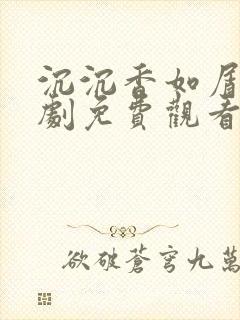 沉沉香如屑
劇免費觀看
欲破蒼穹九萬